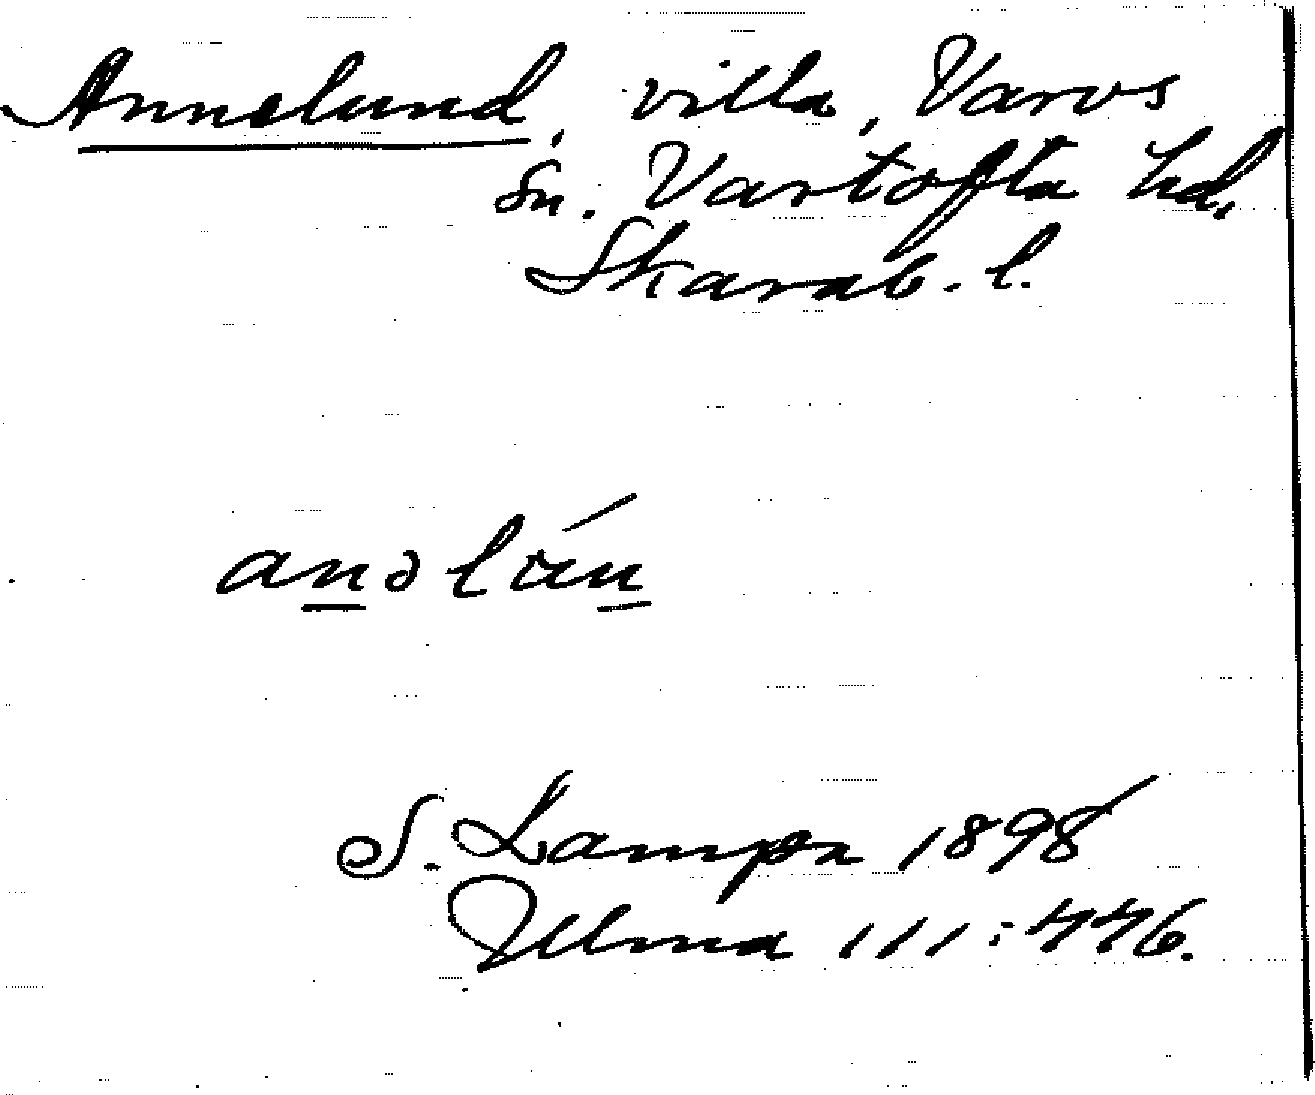 Annelund, villa, Varvs
sn. Vartofta hd,
Skarab. l.
an̲əlún̲
S. Lampa 1898
Ulma 111:446.